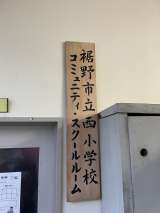 裾野市立西小学校
コミュニティ・スクールルーム